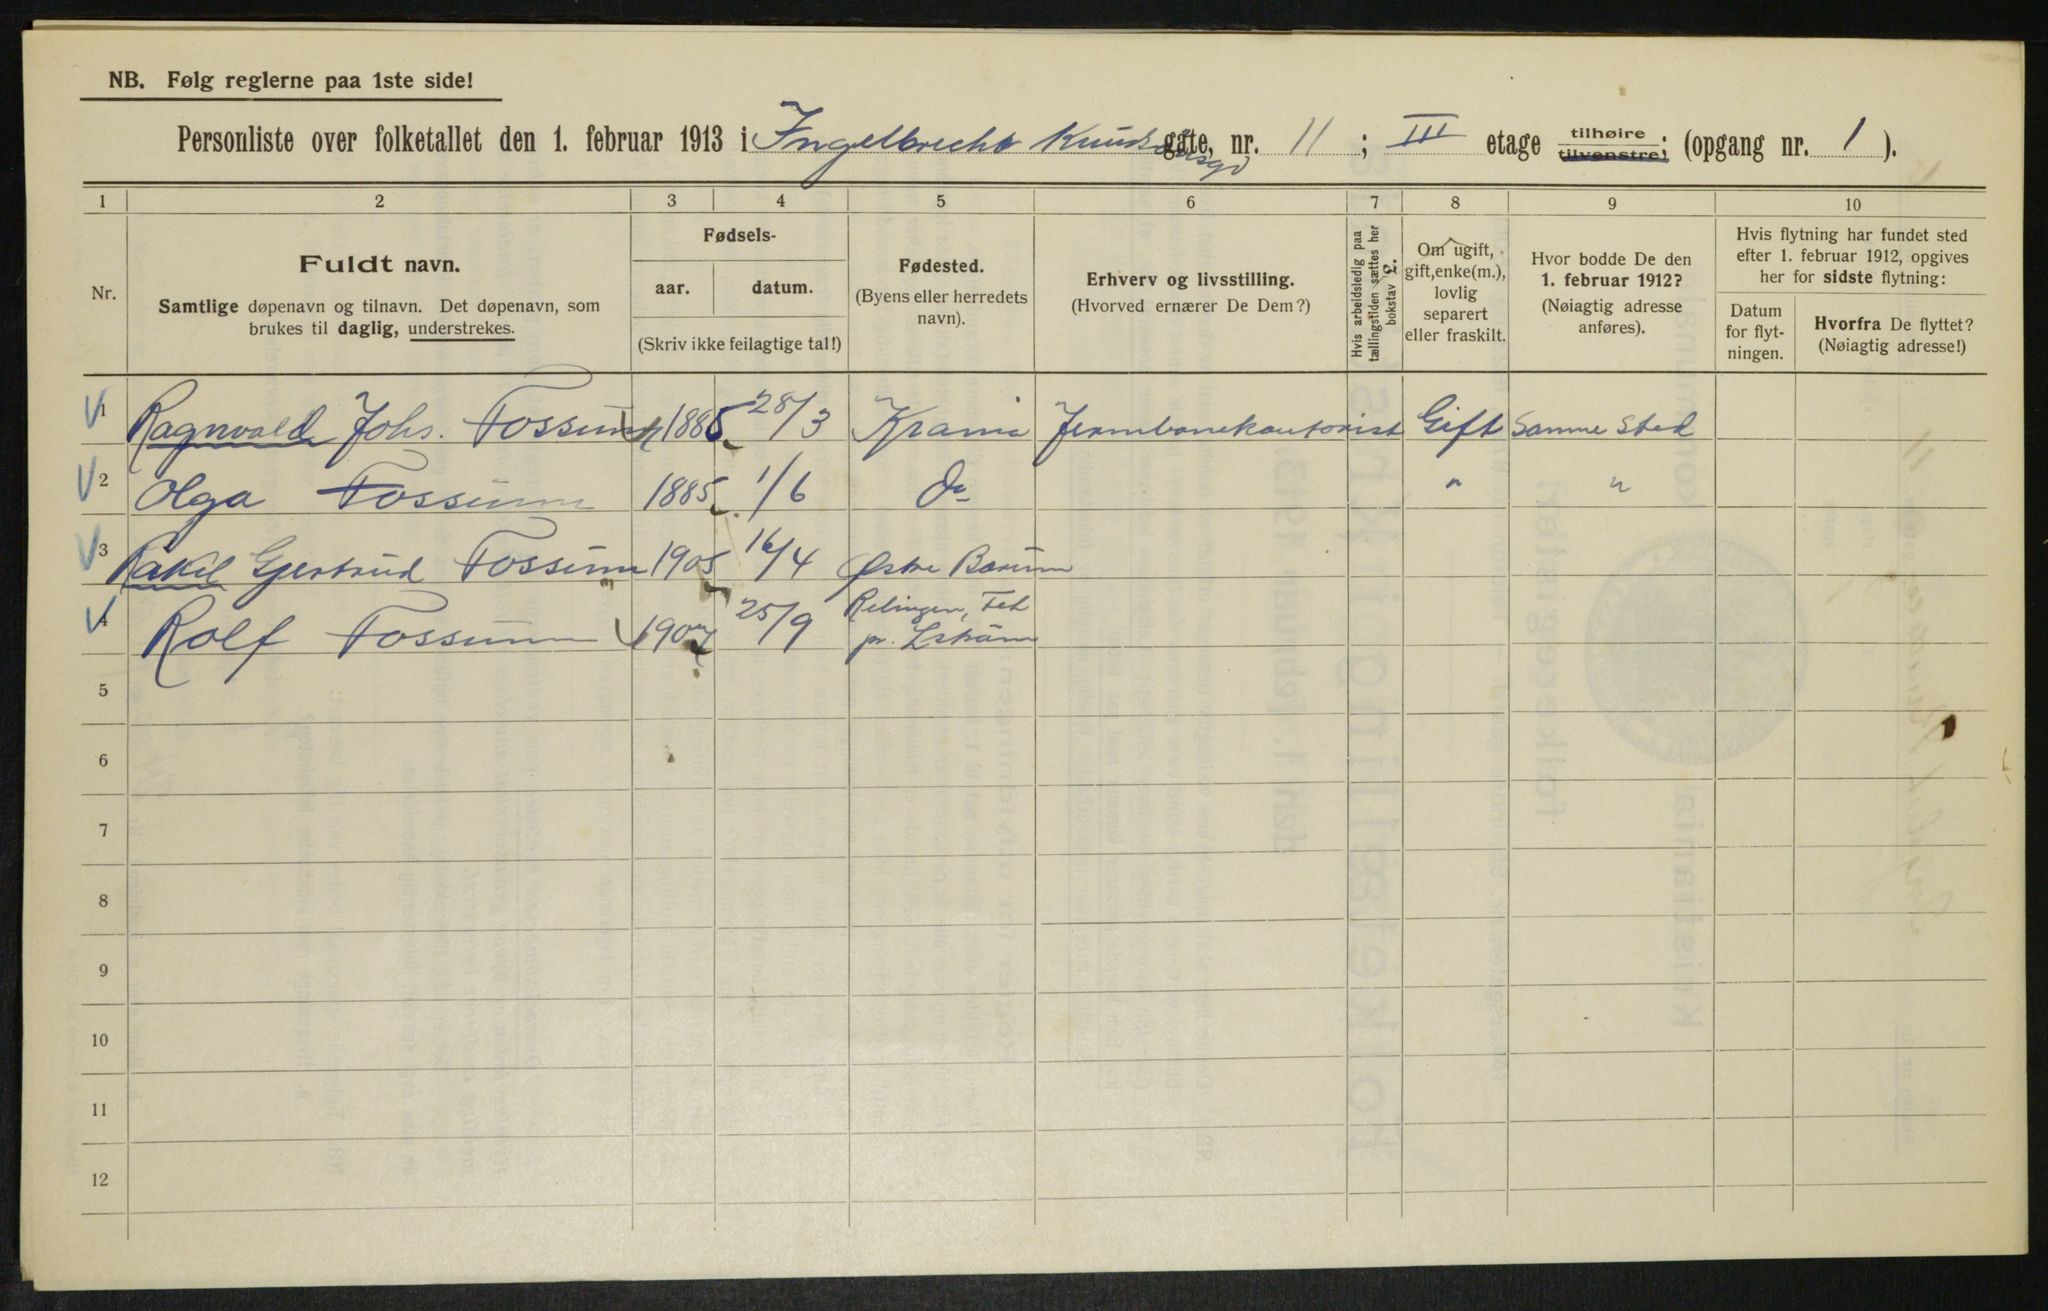 NB. Følg reglerne paa 1ste side!
Personliste over folketallet den 1. februar 1913 i Ingelbrecht Knudsønsgd gate, nr. 11 ; III etage tilhøire tilvenstre; (opgang nr. 1 ).
1 2 3 4 5 6 7 8 9 10
Nr.
Fuldt navn.
Samtlige døpenavn og tilnavn. Det døpenavn, som
brukes til daglig, understrekes.
Fødsels-
aar. datum.
(Skriv ikke feilagtige tal!)
Fødested.
(Byens eller herredets
navn).
Erhverv og livsstilling.
(Hvorved ernærer De Dem?)
Hvis arbeidsledig paa
tællingstiden sættes her
bokstav L.
Om ugift,
gift, enke(m.),
lovlig
separert
eller fraskilt.
Hvor bodde De den
1. februar 1912?
(Nøiagtig adresse
anføres).
Hvis flytning har fundet sted
efter 1. februar 1912, opgives
her for sidste flytning:
Datum
for flyt-
ningen.
Hvorfra De flyttet?
(Nøiagtig adresse!)
1 Ragnvald Johs. Fossum 1885 28/3 Krania Jernbanekontorist Gift Samme Sted
2 Olga Fossum 1885 1/6 do " "
3 Rakel Gertrud Fossum 1905 16/4 Østre Bærum
4 Rolf Fossum 1907 25/9 Relingen, Fet
pr. Lstrøm
5
6
7
8
9
10
11
12